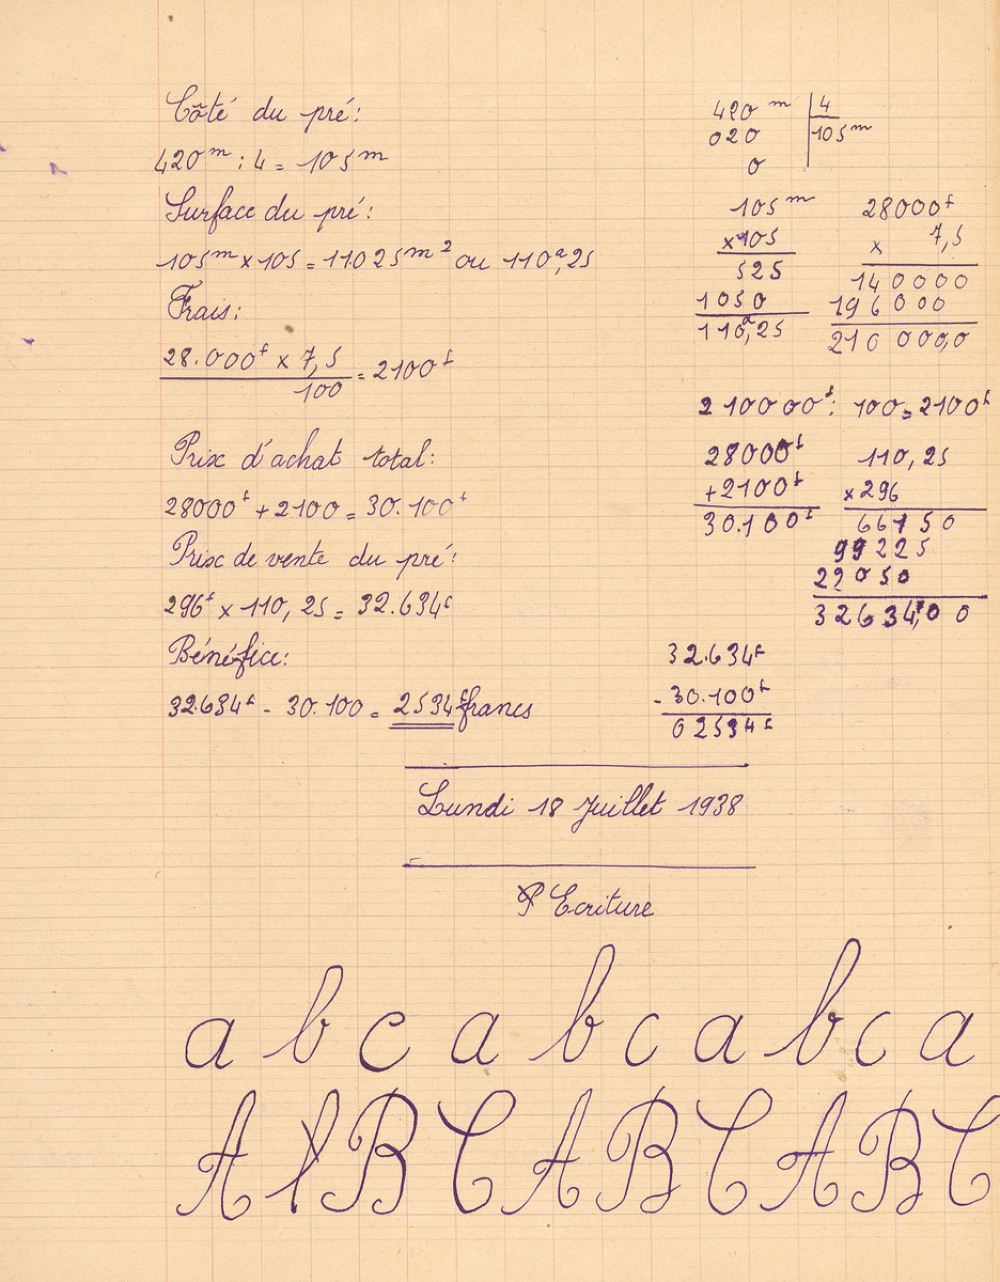 Côté du pré:
420ᵐ : 4 = 105ᵐ
Surface du pré:
105ᵐ x 105 = 11025ᵐ² ou 110ᵃ,25
Frais:
28.000ᶠ x 7,5
100
= 2100ᶠ
Prix d'achat total:
28000ᶠ + 2100 = 30.100ᶠ
Prix de vente du pré:
296ᶠ x 110,25 = 32.634ᶠ
Bénéfice:
32.634ᶠ - 30.100 = 2534ᶠ francs
420ᵐ 4
020 105ᵐ
0
105ᵐ
x105
525
1050
110ᵃ,25
28000ᶠ
x 7,5
140000
196000
210000,0
210000ᶠ : 100 = 2100ᶠ
28000ᶠ
+2100ᶠ
30.100ᶠ
110,25
x296
66150
99225
22050
32634,00
32.634ᶠ
-30.100ᶠ
02534ᶠ
Lundi 18 Juillet 1938
Ecriture
a b c a b c a b c a
A B C A B C A B C